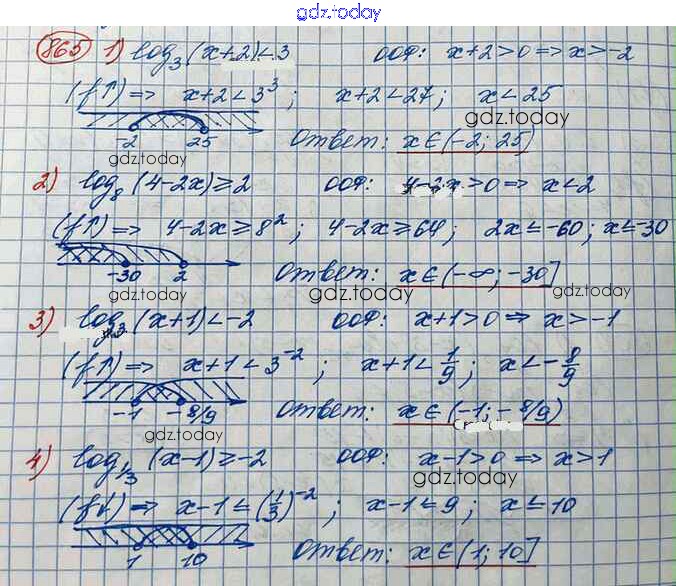 gdz.today
865 1) log₃(x+2)<3 ООФ: x+2>0 => x>-2
(f↑) => x+2<3³; x+2<27; x<25
-2 25 Ответ: x∈(-2; 25)
gdz.today gdz.today
2) log₈(4-2x)≥2 ООФ: 4-2x>0 => x<2
(f↑) => 4-2x≥8²; 4-2x≥64; 2x≤-60; x≤-30
-30 2 Ответ: x∈(-∞; -30]
gdz.today gdz.today gdz.today
3) log₃(x+1)<-2 ООФ: x+1>0 => x>-1
(f↑) => x+1<3⁻²; x+1<1/9; x<-8/9
-1 -8/9 Ответ: x∈(-1; -8/9)
gdz.today
4) log₁/₃(x-1)≥-2 ООФ: x-1>0 => x>1
gdz.today
(f↓) => x-1≤(1/3)⁻²; x-1≤9; x≤10
1 10 Ответ: x∈(1; 10]